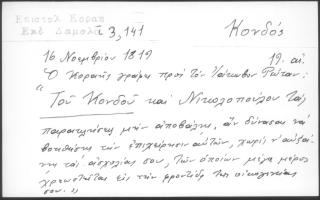 Επιστολ Κοραη
Εκδ Δαμαλᾶ 3,141
Κονδός
16 Νοεμβρίου 1819
19. αἰ.
Ὁ Κοραῆς γράφει πρός τόν Ἰάκωβον Ρώταν:
"Τοῦ Κονδοῦ καί Νικολοπούλου τάς
παρατηρήσεις μήν ἀποβάλῃς, ἄν δύνασαι νά
βοηθήσῃς τήν ἐπιχείρησιν αὐτῶν, χωρίς ν' αὐξά-
νῃς τάς ἀσχολίας σου, τῶν ὁποίων μέγα μέρος
χρεωστεῖται εἰς τήν φροντίδα τῆς οἰκογενείας
σου."